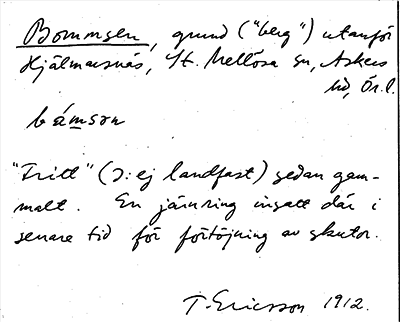 Bommsen, grund ("berg") utanför
Hjälmarsnäs, St. Mellösa sn, Askers
hd, Ör. l.
båmsən
"Fritt" (ɔ: ej landfast) sedan gam-
malt. En järnring insatt där i
senare tid för förtöjning av skutor.
T. Ericsson 1912.